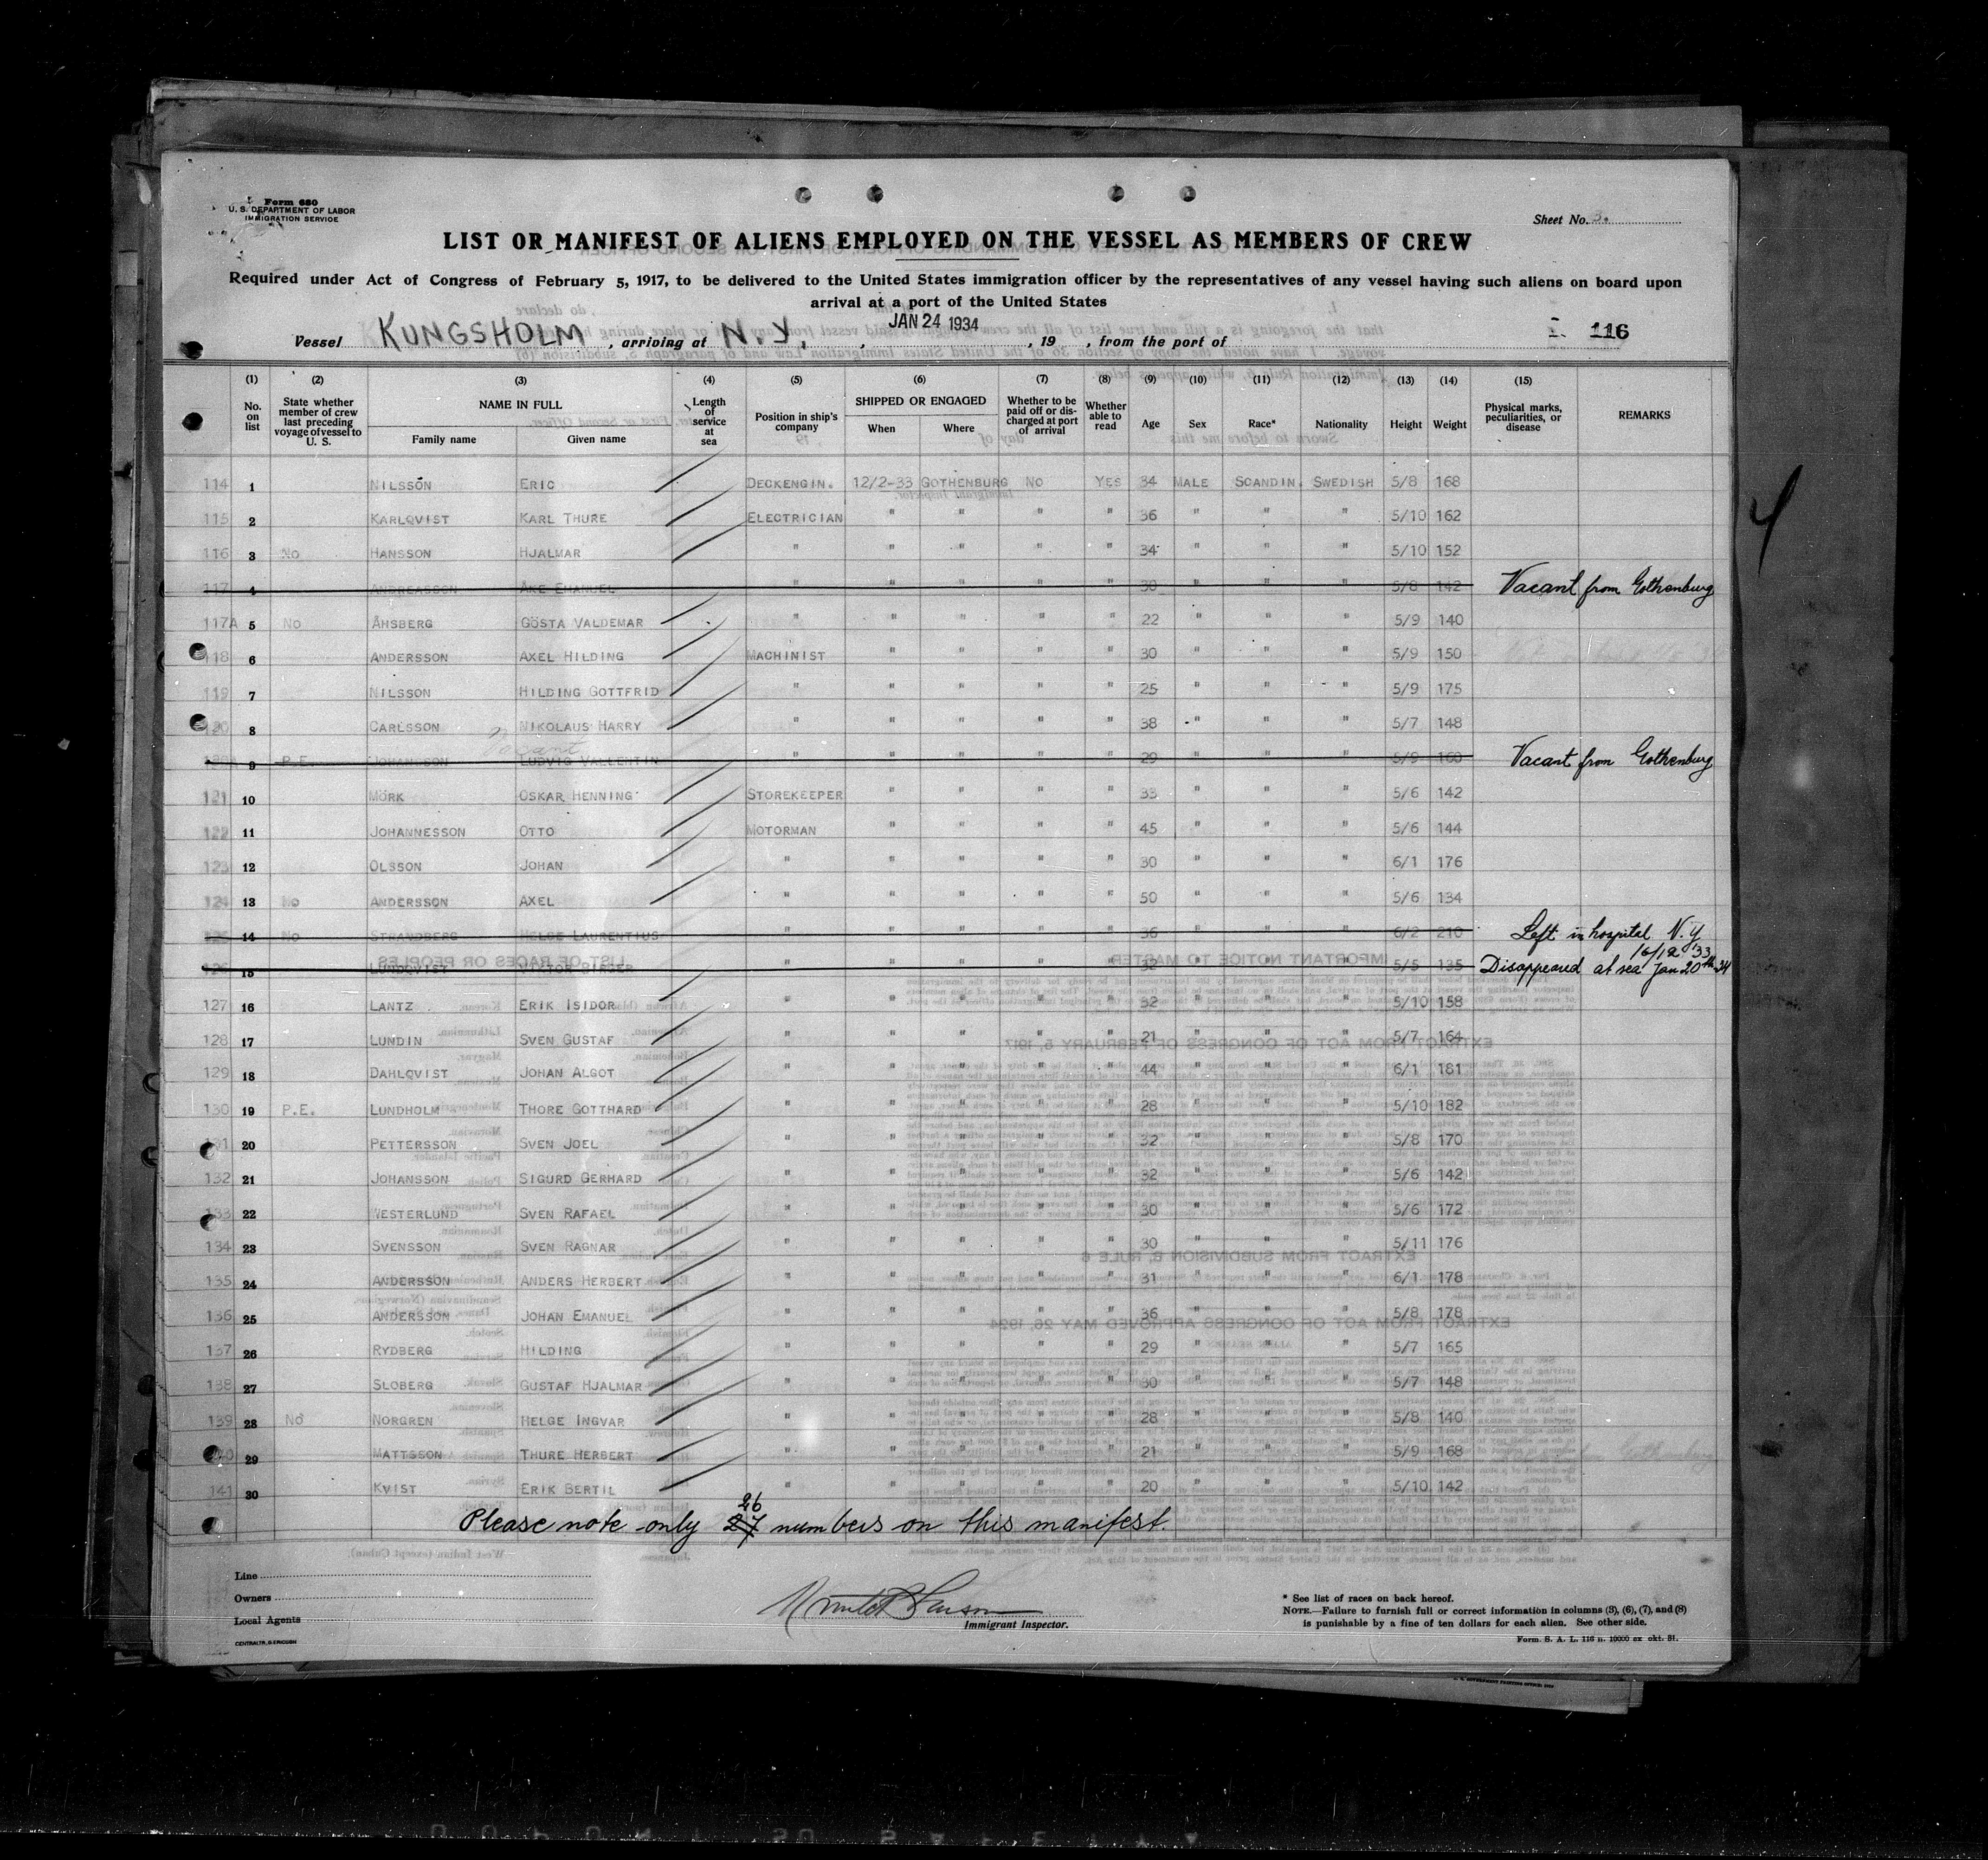 Form 680
U. S. DEPARTMENT OF LABOR
IMMIGRATION SERVICE
Sheet No. 3.
LIST OR MANIFEST OF ALIENS EMPLOYED ON THE VESSEL AS MEMBERS OF CREW
Required under Act of Congress of February 5, 1917, to be delivered to the United States immigration officer by the representatives of any vessel having such aliens on board upon
arrival at a port of the United States
JAN 24 1934
Vessel KUNGSHOLM, arriving at N.Y., , 19 , from the port of 116
(1) (2) (3) (4) (5) (6) (7) (8) (9) (10) (11) (12) (13) (14) (15)
No. on list State whether member of crew last preceding voyage of vessel to U. S. NAME IN FULL Family name Given name Length of service at sea Position in ship's company SHIPPED OR ENGAGED When Where Whether to be paid off or discharged at port of arrival Whether able to read Age Sex Race* Nationality Height Weight Physical marks, peculiarities, or disease REMARKS
114 1 NILSSON ERIC DECKENGIN. 12/2-33 GOTHENBURG NO YES 34 MALE SCANDIN. SWEDISH 5/8 168
115 2 KARLQVIST KARL THURE ELECTRICIAN " " " " 36 " " " 5/10 162
116 3 No HANSSON HJALMAR " " " " " 34 " " " 5/10 152
117 4 ANDREASSON ÅKE EMANUEL " " " " " 30 " " " 5/8 142 Vacant from Gothenburg
117A 5 No ÅHSBERG GÖSTA VALDEMAR " " " " 22 " " " 5/9 140
118 6 ANDERSSON AXEL HILDING MACHINIST " " " " 30 " " " 5/9 150
119 7 NILSSON HILDING GOTTFRID " " " " " 25 " " " 5/9 175
120 8 CARLSSON NIKOLAUS HARRY " " " " " 38 " " " 5/7 148
Vacant
9 P.E. JOHANSSON LUDVIG VALLENTIN " " " " " 29 " " " 5/9 160 Vacant from Gothenburg
121 10 MÖRK OSKAR HENNING STOREKEEPER " " " " 33 " " " 5/6 142
122 11 JOHANNESSON OTTO MOTORMAN " " " " 45 " " " 5/6 144
123 12 OLSSON JOHAN " " " " " 30 " " " 6/1 176
124 13 No ANDERSSON AXEL " " " " " 50 " " " 5/6 134
125 14 No STRANDBERG HELGE LAURENTIUS " " " " " 36 " " " 6/2 210 Left in hospital N.Y. 16/12 '33
126 15 LUNDQVIST VIKTOR BIRGER " " " " " 32 " " " 5/5 135 Disappeared at sea Jan 20th 34
127 16 LANTZ ERIK ISIDOR " " " " " 32 " " " 5/10 158
128 17 LUNDIN SVEN GUSTAF " " " " " 21 " " " 5/7 164
129 18 DAHLQVIST JOHAN ALGOT " " " " " 44 " " " 6/1 181
130 19 P.E. LUNDHOLM THORE GOTTHARD " " " " " 28 " " " 5/10 182
131 20 PETTERSSON SVEN JOEL " " " " " 32 " " " 5/8 170
132 21 JOHANSSON SIGURD GERHARD " " " " " 32 " " " 5/6 142
133 22 WESTERLUND SVEN RAFAEL " " " " " 30 " " " 5/6 172
134 23 SVENSSON SVEN RAGNAR " " " " " 30 " " " 5/11 176
135 24 ANDERSSON ANDERS HERBERT " " " " " 31 " " " 6/1 178
136 25 ANDERSSON JOHAN EMANUEL " " " " " 36 " " " 5/8 178
137 26 RYDBERG HILDING " " " " " 29 " " " 5/7 165
138 27 SLOBERG GUSTAF HJALMAR " " " " " 30 " " " 5/7 148
139 28 No NORGREN HELGE INGVAR " " " " " 28 " " " 5/8 140
140 29 MATTSSON THURE HERBERT " " " " " 21 " " " 5/9 168
141 30 KVIST ERIK BERTIL " " " " " 20 " " " 5/10 142
26
Please note only 27 numbers on this manifest.
Line
Owners
Local Agents
Immigrant Inspector.
* See list of races on back hereof.
NOTE.—Failure to furnish full or correct information in columns (3), (6), (7), and (8)
is punishable by a fine of ten dollars for each alien. See other side.
CENTRALTR. G. ERICSON
Form. S. A. L. 116 n. 10000 ex okt. 31.
4